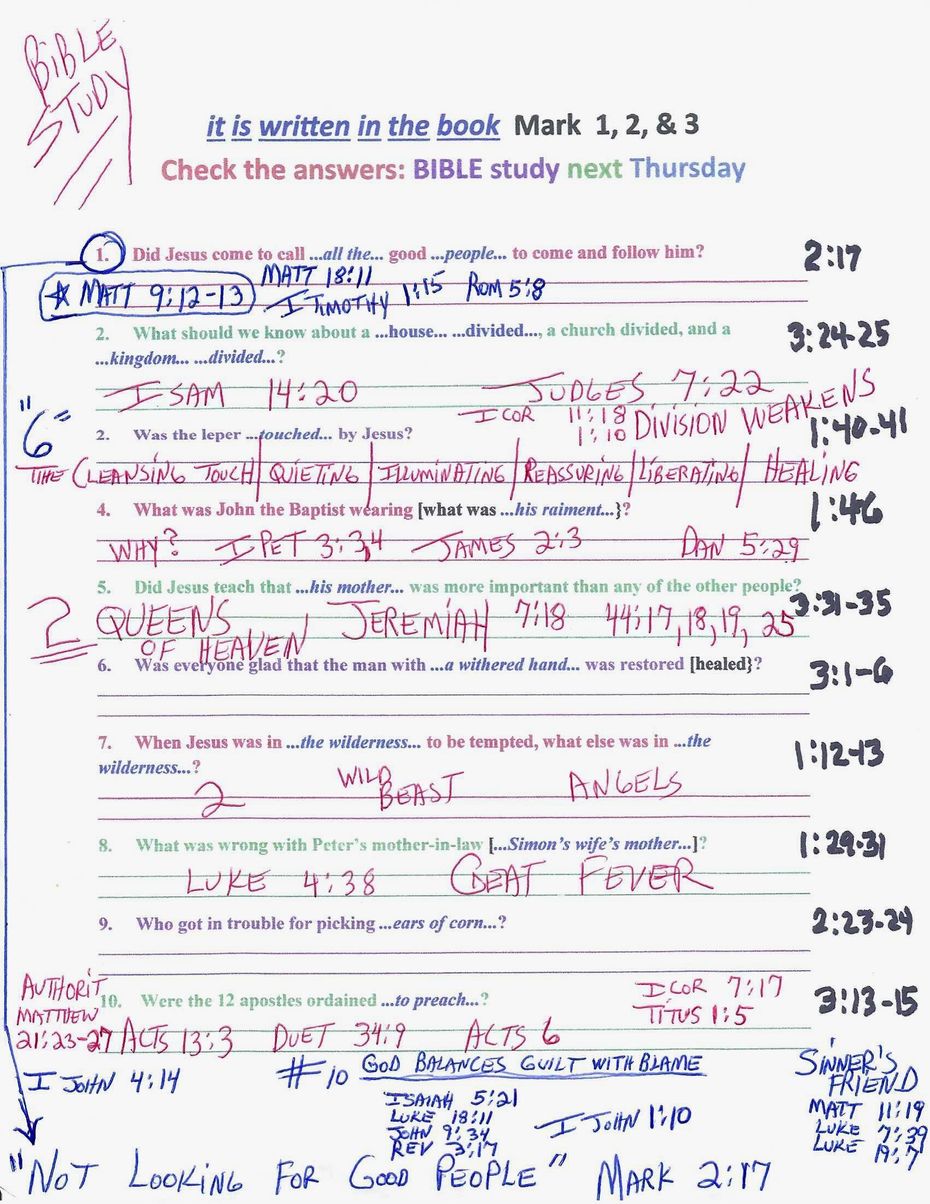 BIBLE
STUDY
it is written in the book Mark 1, 2, & 3
Check the answers: BIBLE study next Thursday
1. Did Jesus come to call ...all the... good ...people... to come and follow him? 2:17
☆ MATT 9:12-13 MATT 18:11 I TIMOTHY 1:15 ROM 5:8
2. What should we know about a ...house... ...divided..., a church divided, and a 3:24-25
...kingdom... ...divided...?
I SAM 14:20 JUDGES 7:22
I COR 11:18
1:10 DIVISION WEAKENS
"6"
2. Was the leper ...touched... by Jesus? 1:40-41
THE CLEANSING TOUCH | QUIETING | ILLUMINATING | REASSURING | LIBERATING | HEALING
4. What was John the Baptist wearing [what was ...his raiment...}? 1:46
WHY? I PET 3:3,4 JAMES 2:3 DAN 5:29
5. Did Jesus teach that ...his mother... was more important than any of the other people? 3:31-35
2 QUEENS OF HEAVEN JEREMIAH 7:18 44:17,18,19, 25
6. Was everyone glad that the man with ...a withered hand... was restored [healed}? 3:1-6
7. When Jesus was in ...the wilderness... to be tempted, what else was in ...the 1:12-13
wilderness...?
2 WILD BEAST ANGELS
8. What was wrong with Peter's mother-in-law [...Simon's wife's mother...]? 1:29-31
LUKE 4:38 GEAT FEVER
9. Who got in trouble for picking ...ears of corn...? 2:23-24
10. Were the 12 apostles ordained ...to preach...? 3:13-15
I COR 7:17
TITUS 1:5
AUTHORIT
MATTHEW
21:23-27 ACTS 13:3 DUET 34:9 ACTS 6
I JOHN 4:14 #10 GOD BALANCES GUILT WITH BLAME
ISAIAH 5:21
LUKE 18:11
JOHN 9:34
REV 3:17
I JOHN 1:10
SINNER'S
FRIEND
MATT 11:19
LUKE 7:39
LUKE 19:7
"NOT LOOKING FOR GOOD PEOPLE" MARK 2:17